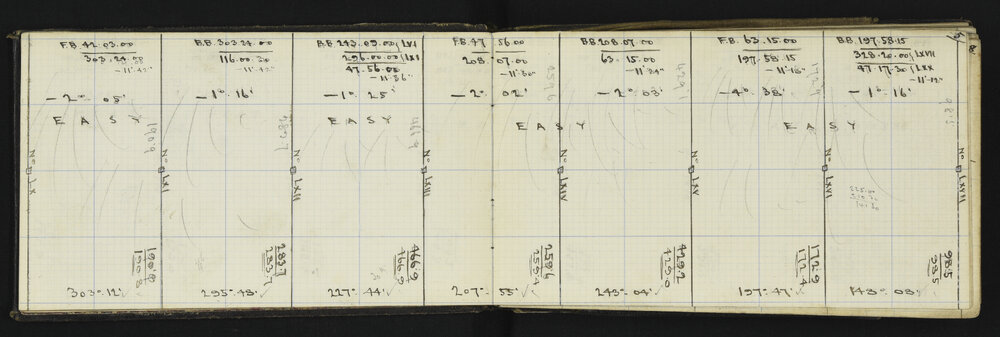 F.B. 42.03.00
303.24.
B.B. 303.24.00
116.00.30
B.B. 243.09.00 / LXI
296.00.00 / LXI
47.56.00
—11'.36"
F.B. 47 56.00
208. 07.00
—11'.30"
B.B. 208.07.00
63. 15.00
—11'.24"
F.B. 63.15.00
197.58.15
—11'.18"
B.B. 197.58.15
328.20.00 / LXVII
47.17.30 / LXX
—11'.12"
—2° 05'
—1° 16'
—1° 25'
—2° 02'
—2° 03'
—4° 38'
—1° 16'
EASY
EASY
EASY
EASY
No LX
No LXI
No LXII
No LXIII
No LXIV
No LXV
No LXVI
No LXVII
190.9
190.8
283.7
283.7
466.9
466.9
259.6
259.4
429.2
429.0
172.9
172.4
98.5
98.5
303° 12'
295° 48'
227° 44'
207° 55'
243° 04'
197° 47'
143° 03'